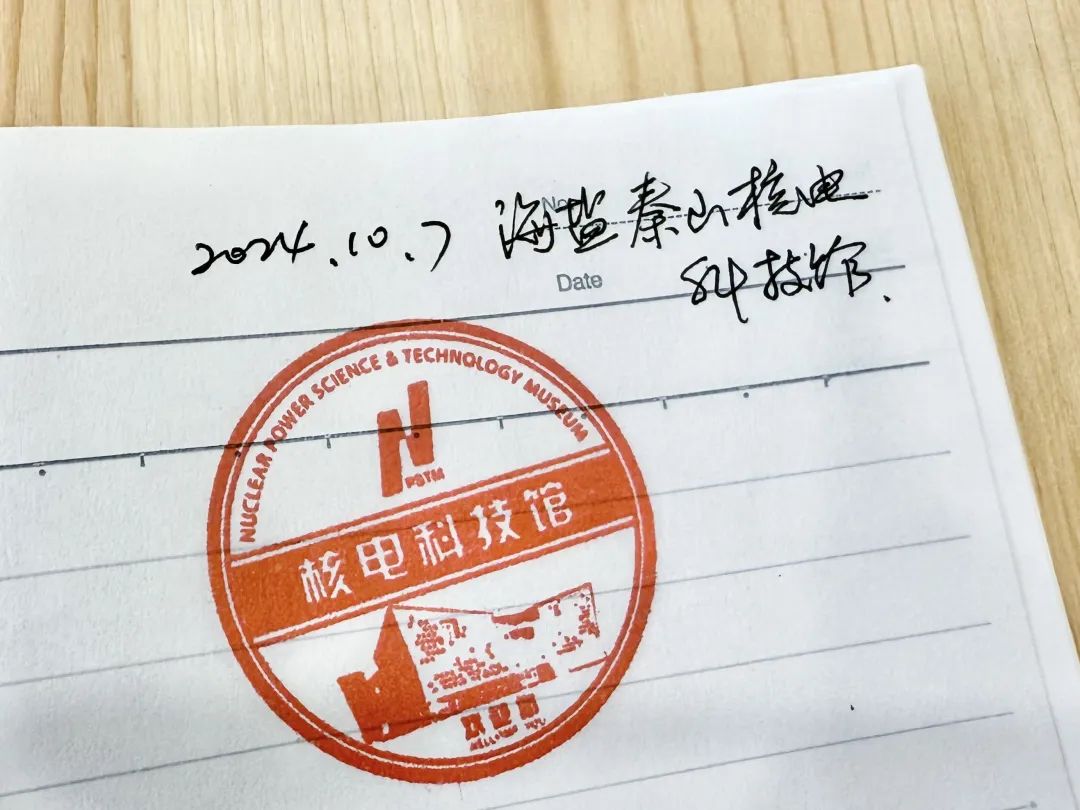 2024.10.7 海盐秦山核电
科技馆.
No
Date
NUCLEAR POWER SCIENCE & TECHNOLOGY MUSEUM
PSTM
核电科技馆
欢迎您